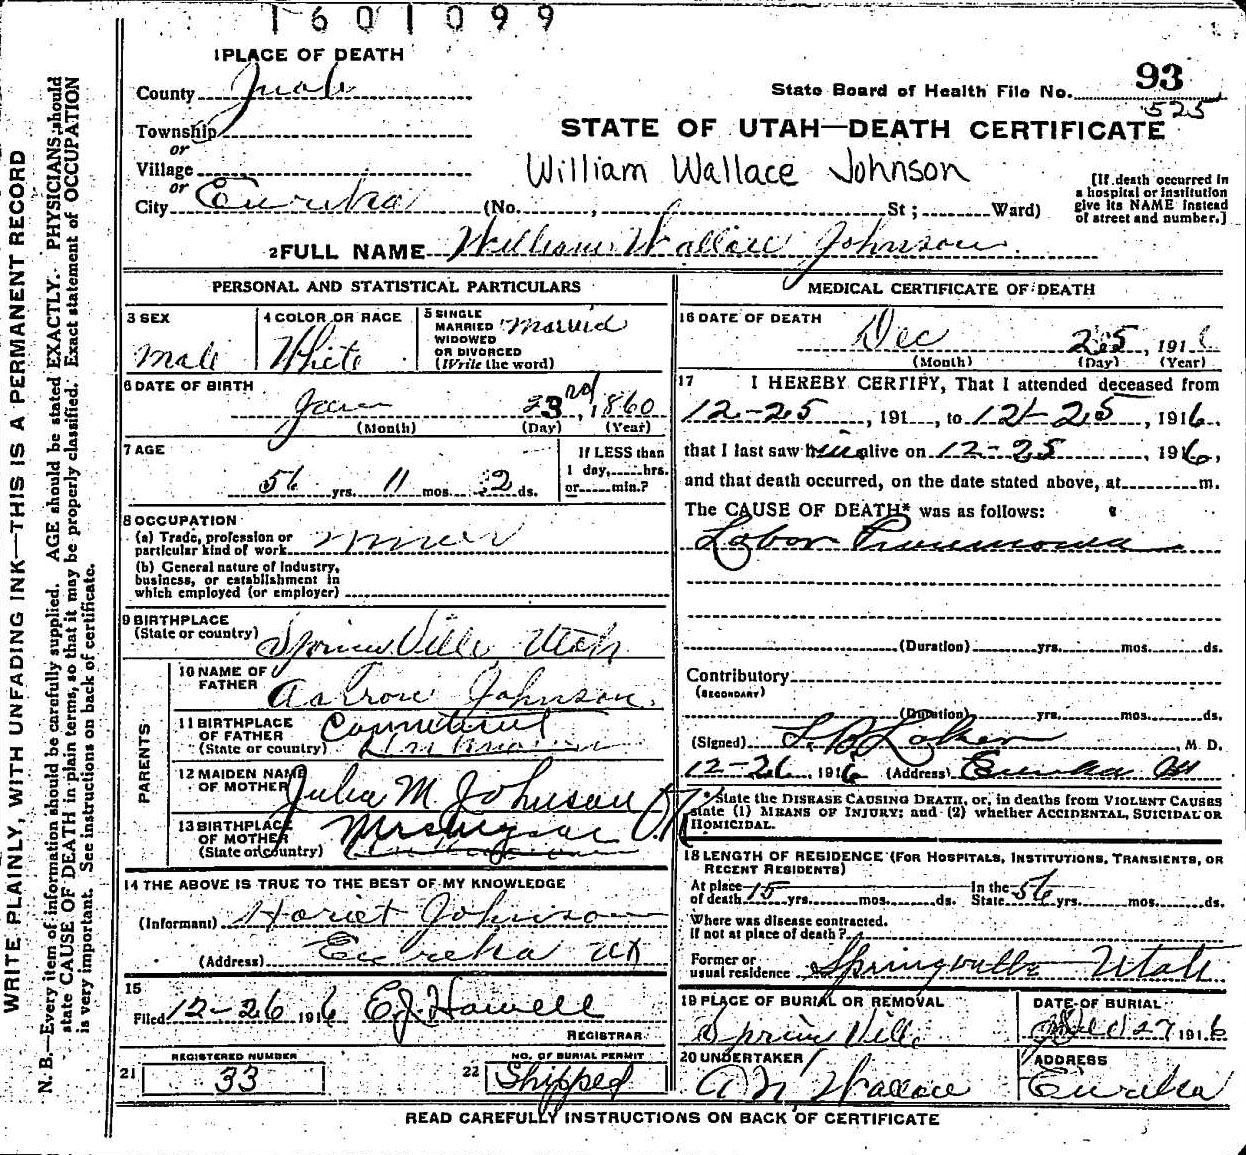 1601099
1 PLACE OF DEATH
County Juab
State Board of Health File No. 93
525
Township
or
Village
or
City Eureka (No. , St ; Ward)
STATE OF UTAH—DEATH CERTIFICATE
William Wallace Johnson
[If death occurred in
a hospital or institution
give its NAME instead
of street and number.]
2 FULL NAME William Wallace Johnson
PERSONAL AND STATISTICAL PARTICULARS
3 SEX
Male
4 COLOR OR RACE
White
5 SINGLE
MARRIED
WIDOWED
OR DIVORCED
(Write the word)
Married
6 DATE OF BIRTH
Jan 23rd, 1860
(Month) (Day) (Year)
7 AGE
56 yrs. 11 mos. 2 ds.
If LESS than
1 day, hrs.
or min.?
8 OCCUPATION
(a) Trade, profession or
particular kind of work Miner
(b) General nature of industry,
business, or establishment in
which employed (or employer)
9 BIRTHPLACE
(State or country) SprinVille Utah
PARENTS
10 NAME OF
FATHER Aalron Johnson
11 BIRTHPLACE
OF FATHER
(State or country) Connetticut
Unknown
12 MAIDEN NAME
OF MOTHER Julia M Johnson OK
13 BIRTHPLACE
OF MOTHER
(State or country)
14 THE ABOVE IS TRUE TO THE BEST OF MY KNOWLEDGE
(Informant) Hariet Johnson
(Address) Eureka Ut
15
Filed 12-26 1916 E.J. Howell
REGISTRAR
REGISTERED NUMBER
21 33
NO. OF BURIAL PERMIT
22 Shipped
MEDICAL CERTIFICATE OF DEATH
16 DATE OF DEATH
Dec 25, 1916
(Month) (Day) (Year)
17 I HEREBY CERTIFY, That I attended deceased from
12-25, 191 , to 12-25, 1916,
that I last saw him alive on 12-25, 1916,
and that death occurred, on the date stated above, at m.
The CAUSE OF DEATH* was as follows:
Labor Pneumonia
(Duration) yrs. mos. ds.
Contributory
(SECONDARY)
(Duration) yrs. mos. ds.
(Signed) , M. D.
12-26, 1916 (Address) Eureka Ut
*State the DISEASE CAUSING DEATH, or, in deaths from VIOLENT CAUSES
state (1) MEANS OF INJURY; and (2) whether ACCIDENTAL, SUICIDAL OR
HOMICIDAL.
18 LENGTH OF RESIDENCE (FOR HOSPITALS, INSTITUTIONS, TRANSIENTS, OR
RECENT RESIDENTS)
At place
of death 15 yrs. mos. ds. In the
State 56 yrs. mos. ds.
Where was disease contracted.
If not at place of death?
Former or
usual residence Springville Utah
19 PLACE OF BURIAL OR REMOVAL
SprinVille
DATE OF BURIAL
27 1916
20 UNDERTAKER
A N Wallace
ADDRESS
Eureka
READ CAREFULLY INSTRUCTIONS ON BACK OF CERTIFICATE
WRITE PLAINLY, WITH UNFADING INK—THIS IS A PERMANENT RECORD
N. B.—Every item of information should be carefully supplied. AGE should be stated EXACTLY. PHYSICIANS should
state CAUSE OF DEATH in plain terms, so that it may be properly classified. Exact statement of OCCUPATION
is very important. See instructions on back of certificate.